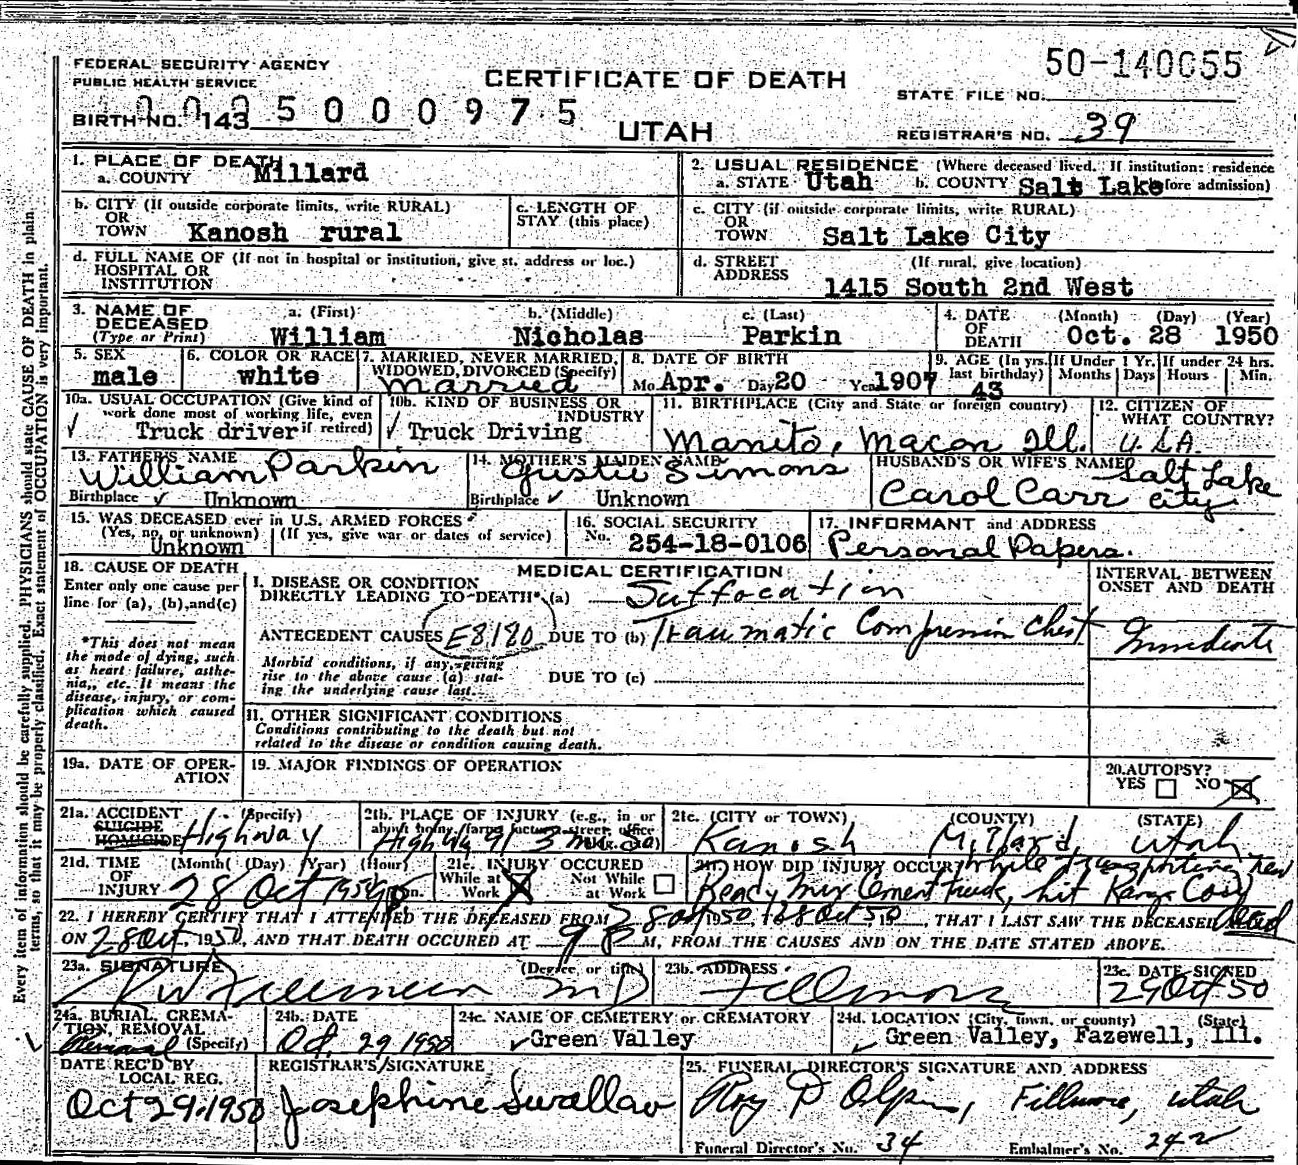 50-140055
FEDERAL SECURITY AGENCY
PUBLIC HEALTH SERVICE
CERTIFICATE OF DEATH
STATE FILE NO.
0095000975
BIRTH NO. 143
UTAH
REGISTRAR'S NO. 39
1. PLACE OF DEATH
a. COUNTY Millard
2. USUAL RESIDENCE (Where deceased lived. If institution: residence
a. STATE Utah b. COUNTY Salt Lake fore admission)
b. CITY (If outside corporate limits, write RURAL)
OR
TOWN Kanosh rural
c. LENGTH OF
STAY (this place)
c. CITY (if outside corporate limits, write RURAL)
OR
TOWN Salt Lake City
d. FULL NAME OF (If not in hospital or institution, give st. address or loc.)
HOSPITAL OR
INSTITUTION
d. STREET (If rural, give location)
ADDRESS
1415 South 2nd West
3. NAME OF
DECEASED
(Type or Print)
a. (First) b. (Middle) c. (Last)
William Nicholas Parkin
4. DATE
OF
DEATH
(Month) (Day) (Year)
Oct. 28 1950
5. SEX
male
6. COLOR OR RACE
white
7. MARRIED, NEVER MARRIED,
WIDOWED, DIVORCED (Specify)
Married
8. DATE OF BIRTH
Mo Apr. Day 20 Year 1907
9. AGE (In yrs.
last birthday)
43
If Under 1 Yr.
Months Days
If under 24 hrs.
Hours Min.
10a. USUAL OCCUPATION (Give kind of
work done most of working life, even
Truck driver if retired)
10b. KIND OF BUSINESS OR
INDUSTRY
Truck Driving
11. BIRTHPLACE (City and State or foreign country)
Manito, Macon Ill.
12. CITIZEN OF
WHAT COUNTRY?
U.S.A.
13. FATHER'S NAME
William Parkin
Birthplace Unknown
14. MOTHER'S MAIDEN NAME
Gustie Simons
Birthplace Unknown
HUSBAND'S OR WIFE'S NAME
Salt Lake
Carol Carr City
15. WAS DECEASED ever in U.S. ARMED FORCES
(Yes, no, or unknown) (If yes, give war or dates of service)
Unknown
16. SOCIAL SECURITY
No. 254-18-0106
17. INFORMANT and ADDRESS
Personal Papers.
18. CAUSE OF DEATH
Enter only one cause per
line for (a), (b), and (c)
*This does not mean
the mode of dying, such
as heart failure, asthe-
nia, etc. It means the
disease, injury, or com-
plication which caused
death.
MEDICAL CERTIFICATION
I. DISEASE OR CONDITION
DIRECTLY LEADING TO DEATH* (a) Suffocation
ANTECEDENT CAUSES E8180 DUE TO (b) Traumatic Compression Chest
Morbid conditions, if any, giving
rise to the above cause (a) stat-
ing the underlying cause last.
DUE TO (c)
II. OTHER SIGNIFICANT CONDITIONS
Conditions contributing to the death but not
related to the disease or condition causing death.
INTERVAL BETWEEN
ONSET AND DEATH
Immediate
19a. DATE OF OPER-
ATION
19. MAJOR FINDINGS OF OPERATION
20. AUTOPSY?
YES NO
21a. ACCIDENT (Specify)
SUICIDE
HOMICIDE Highway
21b. PLACE OF INJURY (e.g., in or
about home, farm, factory, street, office
Highway 91 3 mi. So
21c. (CITY or TOWN) (COUNTY) (STATE)
Kanosh Millard, Utah
21d. TIME
OF
INJURY
(Month) (Day) (Year) (Hour)
28 Oct 1950
21e. INJURY OCCURED
While at Work
Not While at Work
21f. HOW DID INJURY OCCUR? While transporting new
Ready mix Cement truck, hit Range Cow
22. I HEREBY CERTIFY THAT I ATTENDED THE DECEASED FROM 28 Oct 1950 to 28 Oct 50, THAT I LAST SAW THE DECEASED Dead
ON 28 Oct, 1950, AND THAT DEATH OCCURED AT 9 P M, FROM THE CAUSES AND ON THE DATE STATED ABOVE.
23a. SIGNATURE (Degree or title)
MD
23b. ADDRESS
Fillmore
23c. DATE SIGNED
29 Oct 50
24a. BURIAL, CREMA-
TION, REMOVAL
Removal (Specify)
24b. DATE
Oct. 29 1950
24c. NAME OF CEMETERY or CREMATORY
Green Valley
24d. LOCATION (City, town, or county) (State)
Green Valley, Fazewell, Ill.
DATE REC'D BY
LOCAL REG.
Oct 29-1950
REGISTRAR'S SIGNATURE
Josephine Swallow
25. FUNERAL DIRECTOR'S SIGNATURE AND ADDRESS
Roy D Olpin, Fillmore, Utah
Funeral Director's No. 34 Embalmer's No. 242
Every item of information should be carefully supplied. PHYSICIANS should state CAUSE OF DEATH in plain
terms, so that it may be properly classified. Exact statement of OCCUPATION is very important.